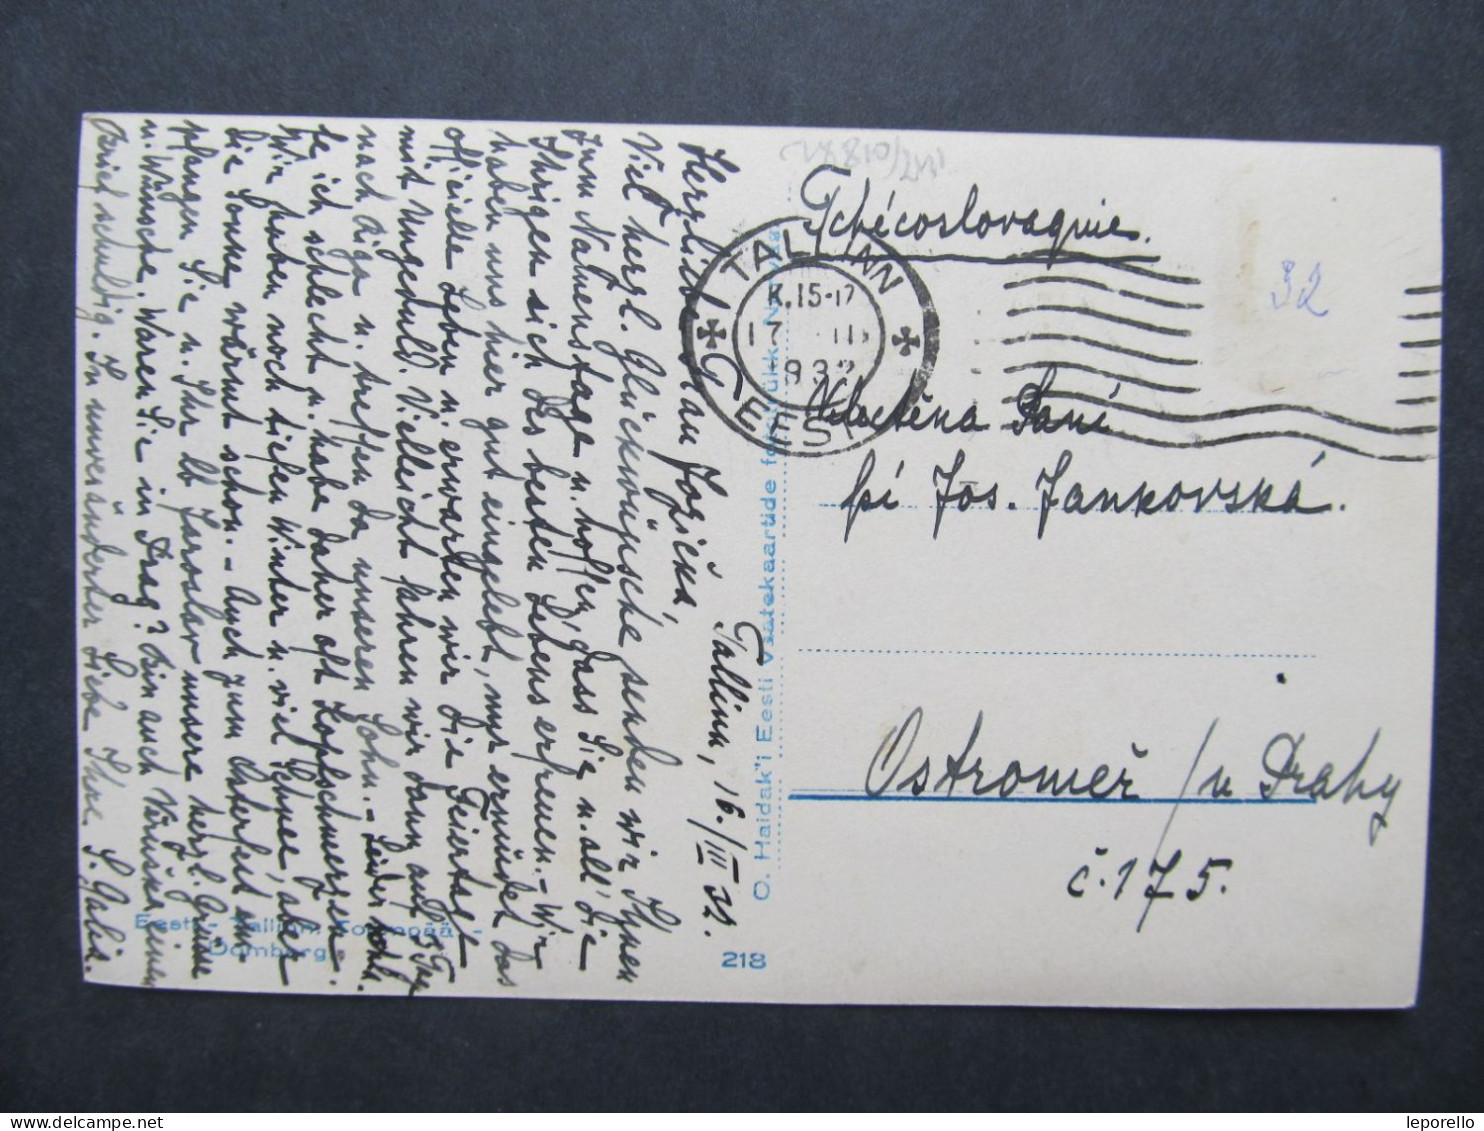 Tallinn, 16./III 32.
Herzliebe Frau Jožičká,
Viel herzl. Glückwünsche senden wir Ihnen
zum Namenstage u. hoffen, dass Sie u. all' die
Ihrigen sich des besten Lebens erfreuen. – Wir
haben uns hier gut eingelebt, nur ermüdet das
officielle Leben u. erwarten wir die Feiertage
mit Ungeduld. Vielleicht fahren wir dann auf 3 Tg
nach Riga u. treffen da unseren Sohn. – Leider sehe
ich schlecht u. habe daher oft Kopfschmerzen.
Wir haben noch tiefen Winter u. viel Schnee, aber
die Sonne wärmt schon. – Auch zum Osterfest em-
pfangen Sie u. Ihr lb Jaroslav unsere herzl. Grüsse
u. Wünsche. Waren Sie in Prag? Bin auch Věruška einen
Brief schuldig. In unveränderter Liebe Ihre
Eesti - Tallinn.
Domberg
218
O. Haidak'i Eesti Vaatekaartide
TALLINN
K.15-17
17 III
1932
EESTI
Tchécoslovaquie.
32
Vlactěna Paní
pí Jos. Jankovská.
Ostroměř / u Prahy
č. 175.
leporello